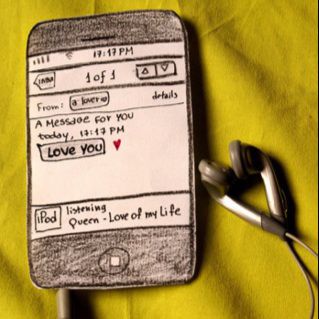 17:17 PM
1 of 1
From: a lover
details
A Message for you
today, 17:17 PM
Love you
iPod
listening
Queen - Love of my Life